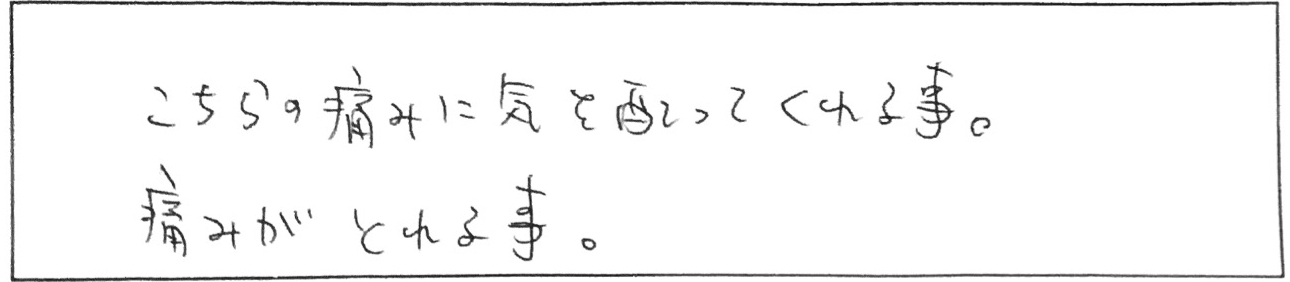 こちらの痛みに気を配ってくれる事。
痛みがとれる事。